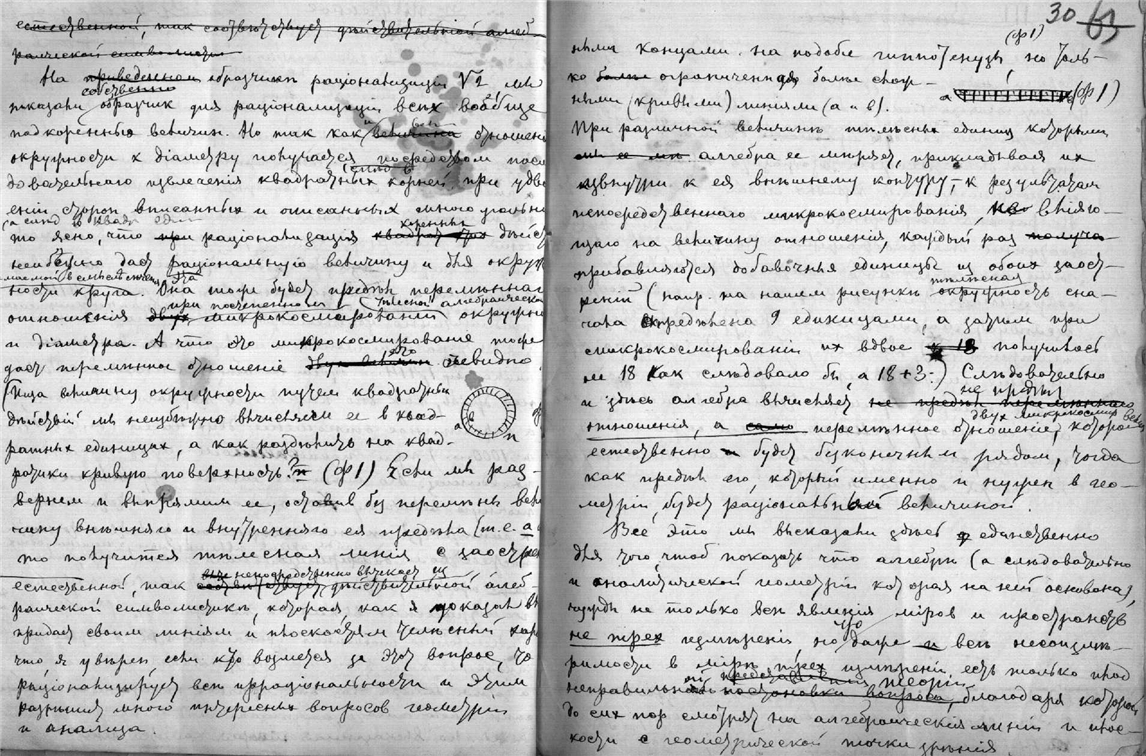 естественной, так соотвѣтствуетъ дѣйствительной алгеб
раической символистикѣ
На приведенномъ образчикѣ раціонализаціи √2 мы
собственно
показали образчик для раціонализаціи всѣх вообще
подкоренных величин. Но так как величина отношенія
окружности к діаметру получается посредством после
довательнаго извлеченія квадратных корней при удво
еніи сторон вписанных и описанных много угольни
то ясно, что при раціонализація дѣйст
неизбѣжно даст раціональную величину и для окруж
ности круга. Она тоже будет предѣл перемѣннаго
при постепенном алгебраическом
отношенія двух микрокосмированіи окружно
и діаметра. А что это микрокосмированіе тоже
даст перемѣнное отношеніе очевидно
Ища величину окружности путем квадратных
дѣйствій мы неизбѣжно вычисляем ее в квад
ратных единицах, а как раздѣлить на квад-
ратики кривую поверхность? (ф 1) Если мы раз-
вернем и выпрямим ее, оставив без перемѣны вели
чину внѣшняго и внутренняго ея предѣла (т. е. а
то получится тѣлесная линія с заострен
непосредственно вытекает из
естественной, так дѣйствительной алгеб-
раической символистики, которая, как я доказал вы
придает своим линіям и плоскостям тѣлесный хар
что, я увѣрен если кто возмется за этот вопрос, то
раціонализирует всѣ ирраціональности и этим
разрѣшит много интересных вопросов геометріи
и анализа.
30 63
(ф 1)
ными концами на подобіе гиппотенузы, но толь-
ко болѣе ограниченная болѣе слож-
ными (кривыми) линіями (а и в).
а (ф 1)
При различной величинѣ тѣлесных единиц которыми
алгебра ее мѣряет, прикладывая их
извнутри к ея внѣшнему контуру,– к результатам
непосредственнаго микрокосмированія, вліяю-
щаго на величину отношенія, каждый раз получа
прибавляются добавочныя единицы из обоих заост-
рений (напр. на нашем рисункѣ окружность сна-
чала опредѣлена 9 единицами, а затѣм при
микрокосмированіи их вдвое получилось
не 18 как слѣдовало бы, а 18+3.) Слѣдовательно
не предѣл
и здѣсь алгебра вычисляет не предѣл перемѣннаго
двух микрокосмир
отношенія, а само перемѣнное отношеніе, которое
естественно будет безконечным рядом, тогда
как предѣл его, который именно и нужен в гео-
метріи, будет раціональной величиной.
Все это мы высказали здѣсь единственно
для того чтоб показать что алгебры (а слѣдовательно
и аналитической геометріи которая на ней основана,
чужды не только всѣ явленія міров и пространств
что
не трех измѣреній, но даже и всѣ несоизмѣ-
римости в мірѣ трех измѣреній есть только плод
неправильной постановки вопроса, благодаря которой
до сих пор смотрят на алгебраическія линіи и плос-
кости с геометрической точки зрѣнія